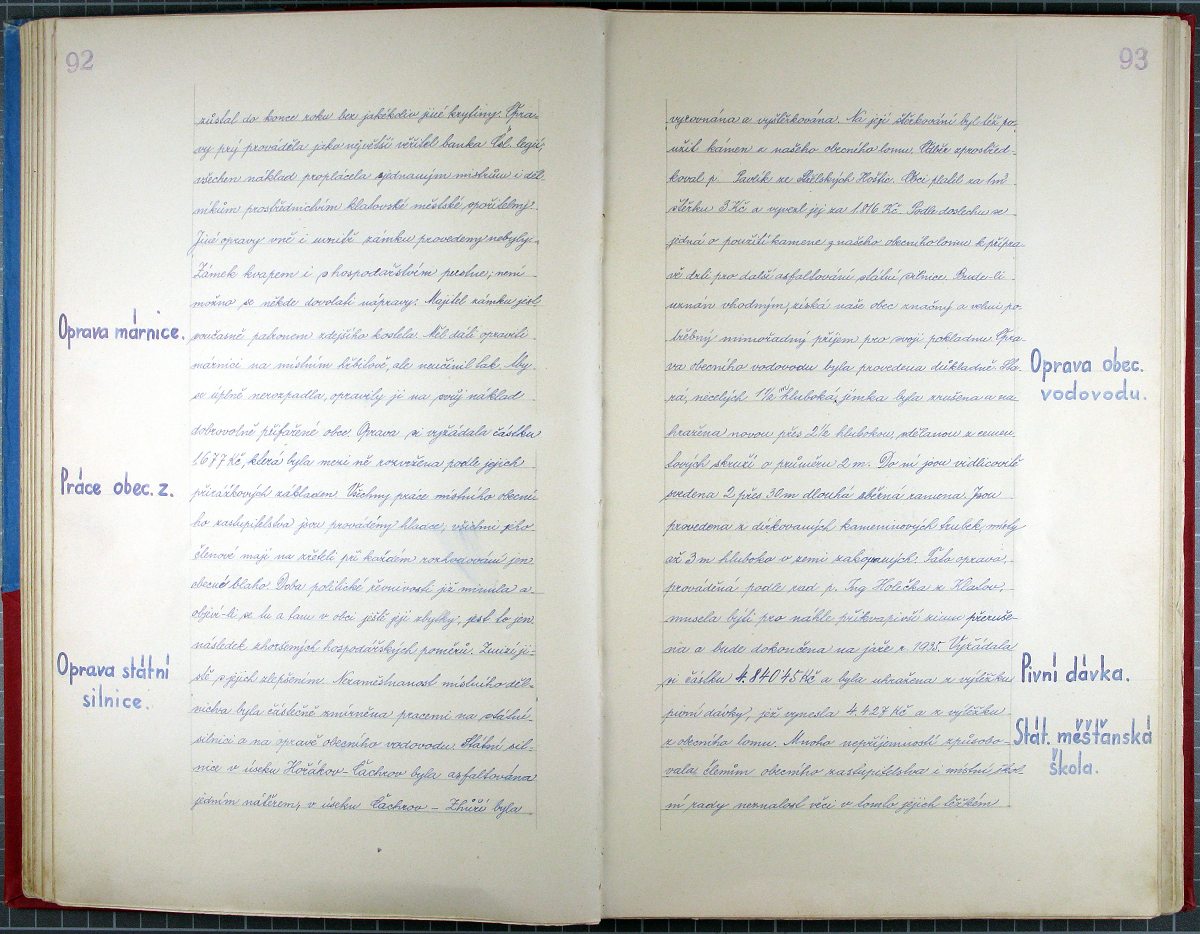 92
zůstal do konce roku bez jakékoliv jiné krytiny. Opra-
vy prý prováděla jako největší věřitel banka Čsl. legií,
všechen náklad proplácela zjednaným mistrům i děl-
níkům prostřednictvím klatovské městské spořitelny.
Jiné opravy vně i uvnitř zámku provedeny nebyly.
Zámek kvapem i s hospodářstvím pustne; není
možno se někde dovolati nápravy. Majitel zámku jest
Oprava márnice.
současně patronem zdejšího kostela. Měl dáti opraviti
márnici na místním hřbitově, ale neučinil tak. Aby
se úplně nerozpadla, opravily ji na svůj náklad
dobrovolně přifařené obce. Oprava si vyžádala částku
1677 Kč, která byla mezi ně rozvržena podle jejich
Práce obec. z.
přirážkových základen. Všechny práce místního obecní-
ho zastupitelstva jsou prováděny hladce, všichni jeho
členové mají na zřeteli při každém rozhodování jen
obecné blaho. Doba politické řevnivosti již minula a
objeví-li se tu a tam v obci ještě její zbytky, jest to jen
následek zhoršených hospodářských poměrů. Zmizí ji-
Oprava státní
silnice.
stě s jejich zlepšením. Nezaměstnanost místního děl-
nictva byla částečně zmírněna pracemi na státní
silnici a na opravě obecního vodovodu. Státní sil-
nice v úseku Hořákov - Čachrov byla asfaltována
jedním nátěrem, v úseku Čachrov - Zhůří byla
93
vyrovnána a vyštěrkována. Na její štěrkování byl též po-
užit kámen z našeho obecního lomu. Odběr zprostřed-
koval p. Pavlík ze Střelských Hoštic. Obci platil za 1m³
štěrku 3 Kč a vyvezl jej za 1.816 Kč. Podle doslechu se
jedná o použití kamene z našeho obecního lomu k přípra-
vě drti pro další asfaltování státní silnice. Bude-li
uznán vhodným, získá naše obec značný a velmi po-
třebný mimořádný příjem pro svoji pokladnu. Opra-
Oprava obec.
vodovodu.
va obecního vodovodu byla provedena důkladně. Sta-
rá, necelých 1½ m hluboká, jímka byla zrušena a na-
hražena novou přes 2½ hlubokou, sdělanou z cemen-
tových skruží o průměru 2 m. Do ní jsou vidlicovitě
svedena 2 přes 30 m dlouhá sběrná ramena. Jsou
provedena z dírkovaných kameninových trubek, místy
až 3 m hluboko v zemi zakopaných. Tato oprava,
prováděná podle rad p. Ing Holečka z Klatov,
musela býti pro náhle přikvapivší zimu přeruše-
na a bude dokončena na jaře r. 1935. Vyžádala
Pivní dávka.
si částku 4.840·45 Kč a byla uhražena z výtěžku
pivní dávky, jež vynesla 4.427 Kč a z výtěžku
Stát. měšťanská
škola.
z obecního lomu. Mnoho nepříjemností způsobo-
vala členům obecního zastupitelstva i místní škol-
ní rady neznalost věci v tomto jejich těžkém